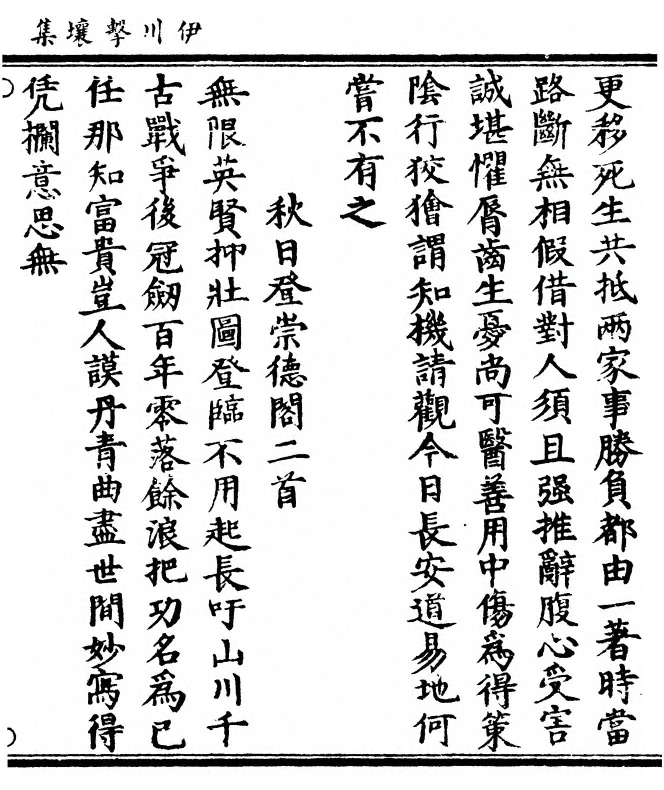 伊川擊壤集
更移死生共抵兩家事勝負都由一著時當
路斷無相假借對人須且强推辭腹心受害
誠堪懼脣齒生憂尚可醫善用中傷爲得策
陰行狡獪謂知機請觀今日長安道易地何
嘗不有之
秋日登崇德閣二首
無限英賢抑壯圖登臨不用起長吁山川千
古戰爭後冠劒百年零落餘浪把功名爲已
任那知富貴豈人謨丹青曲盡世間妙寫得
凭欄意思無